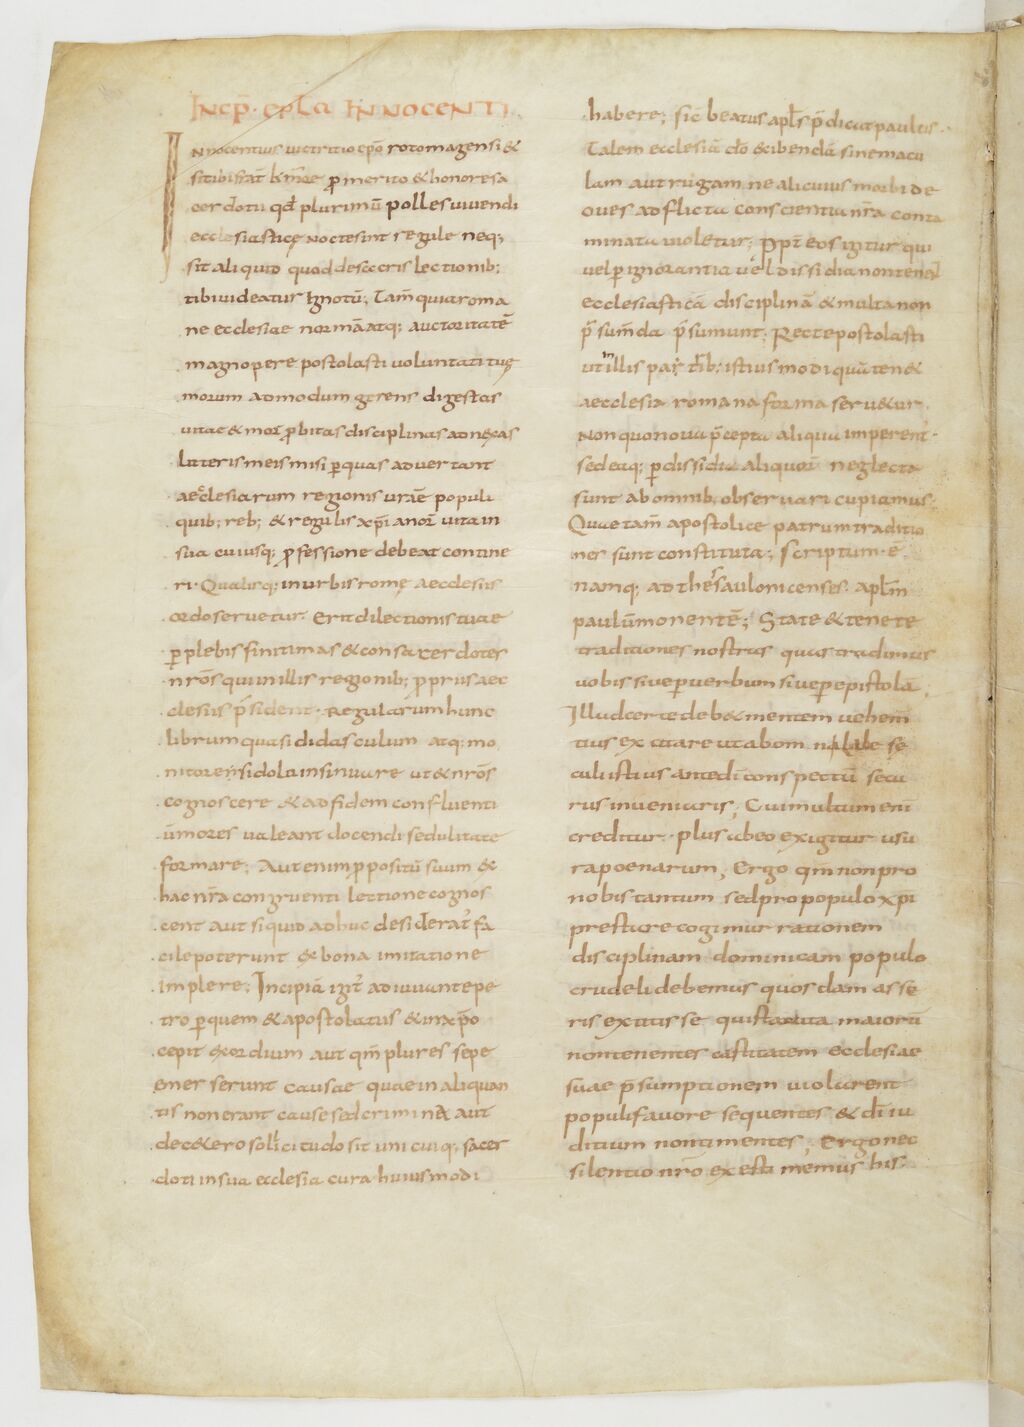 Incp̄. epl̄a Innocenti
Innocentius uictritio ep̄o rotomagensi &
si tibi frat̄ km̄e ꝑ merito & honore sa
cerdotii qđ plurimū polles uiuendi
ecclesiasticę noctesint regule neq;
sit aliquid quod desacris lectionib;
tibi uideatur ignotū, Tam̄ quia roma
ne ecclesiae normā atq; auctoritatē
magnopere postolasti uoluntati tuę
morum admodum gerens digestas
uitae & mor̄ p̄bitas disciplinas adnexas
litteris meis misi ꝑquas aduertant
aecclesiarum regionis urāe populi
quib; reb; & regulis xp̄ianor̄ uita in
sua cuiusq; ꝓfessione debeat contine
ri. Qualisq; in urbis romę aecclesiis
ordo seruetur. Erit dilectionis tuae
ꝑ plebis finitimas & consacerdotes
nrōs qui in illis regionib; propriis aec
clesiis p̄sident. Regularum hunc
librum quasi didasculum atq; mo
nitorem sidola insinuare ut & nrōs
cognoscere & ad fidem confluenti
ūmores ualeant docendi sedulitate
formare; Aut enim ꝓpositū suum &
hac nr̄a congruenti lectione cognos
cent aut si quid adhuc desiderat̄ fa
cile poterunt & bona imitatione
implere; Incipiā igit̄ adiuuante pe
tro ꝑ quem & apostolatus & in xp̄o
cepit exordium aut qm̄ plures sepe
emerserunt causae quae in aliquan
tis non erant cause sed crimina aut
dec&ero sollicitudo sit uni cuiq; sacer
doti in sua ecclesia cura huiusmodi
habere; sic̄ beatus apl̄s p̄dicat paulus
Talem ecclesiā dō exibendā sine macu
lam aut rugam ne alicuius morbide
oues adflicta conscientia nr̄a conta
minata uioletur; ꝓpt̄ eos igitur qui
uel ꝑ ignorantia uel dissidia non tenent
ecclesiasticā disciplinā & multa non
p̄sumenda p̄sumunt; Recte postolasti
ut in illis partib; istius modi quā ten&
aecclesia romana forma seruetur.
Non quo noua p̄cepta aliqua imperent̄
sed eaq; ꝑ dissidia aliquor̄ neglecta
sunt ab omnib; obseruari cupiamus.
Quae tam̄ apostolice patrum traditio
nes sunt constituta; scriptum ē
namq; ad thessalonicenses. apl̄m
paulū monentē; State & tenete
traditiones nostras quas tradimus
uobis siue per uerbum siue per epistolā.
Illud certe deb& mentem uehem̄
tius excitare ut ab om̄ labe se
culi istius ante dī conspectū secu
rus inueniaris; Cui multum enī
creditur. plus ab eo exigitur usu
ra poenarum, Ergo qm̄ non pro
nobis tantum sed pro populo xp̄i
prestare cogimur rationem
disciplinam dominicam populo
crudeli debemus quosdam asse
ris extitisse qui statuta maiorū
non tenentes castitatem ecclesiae
suae p̄sumptionem uiolarent
populi fauore sequentes & dī iu
ditium non timentes; Ergo nec
silentio nrō existimemus his